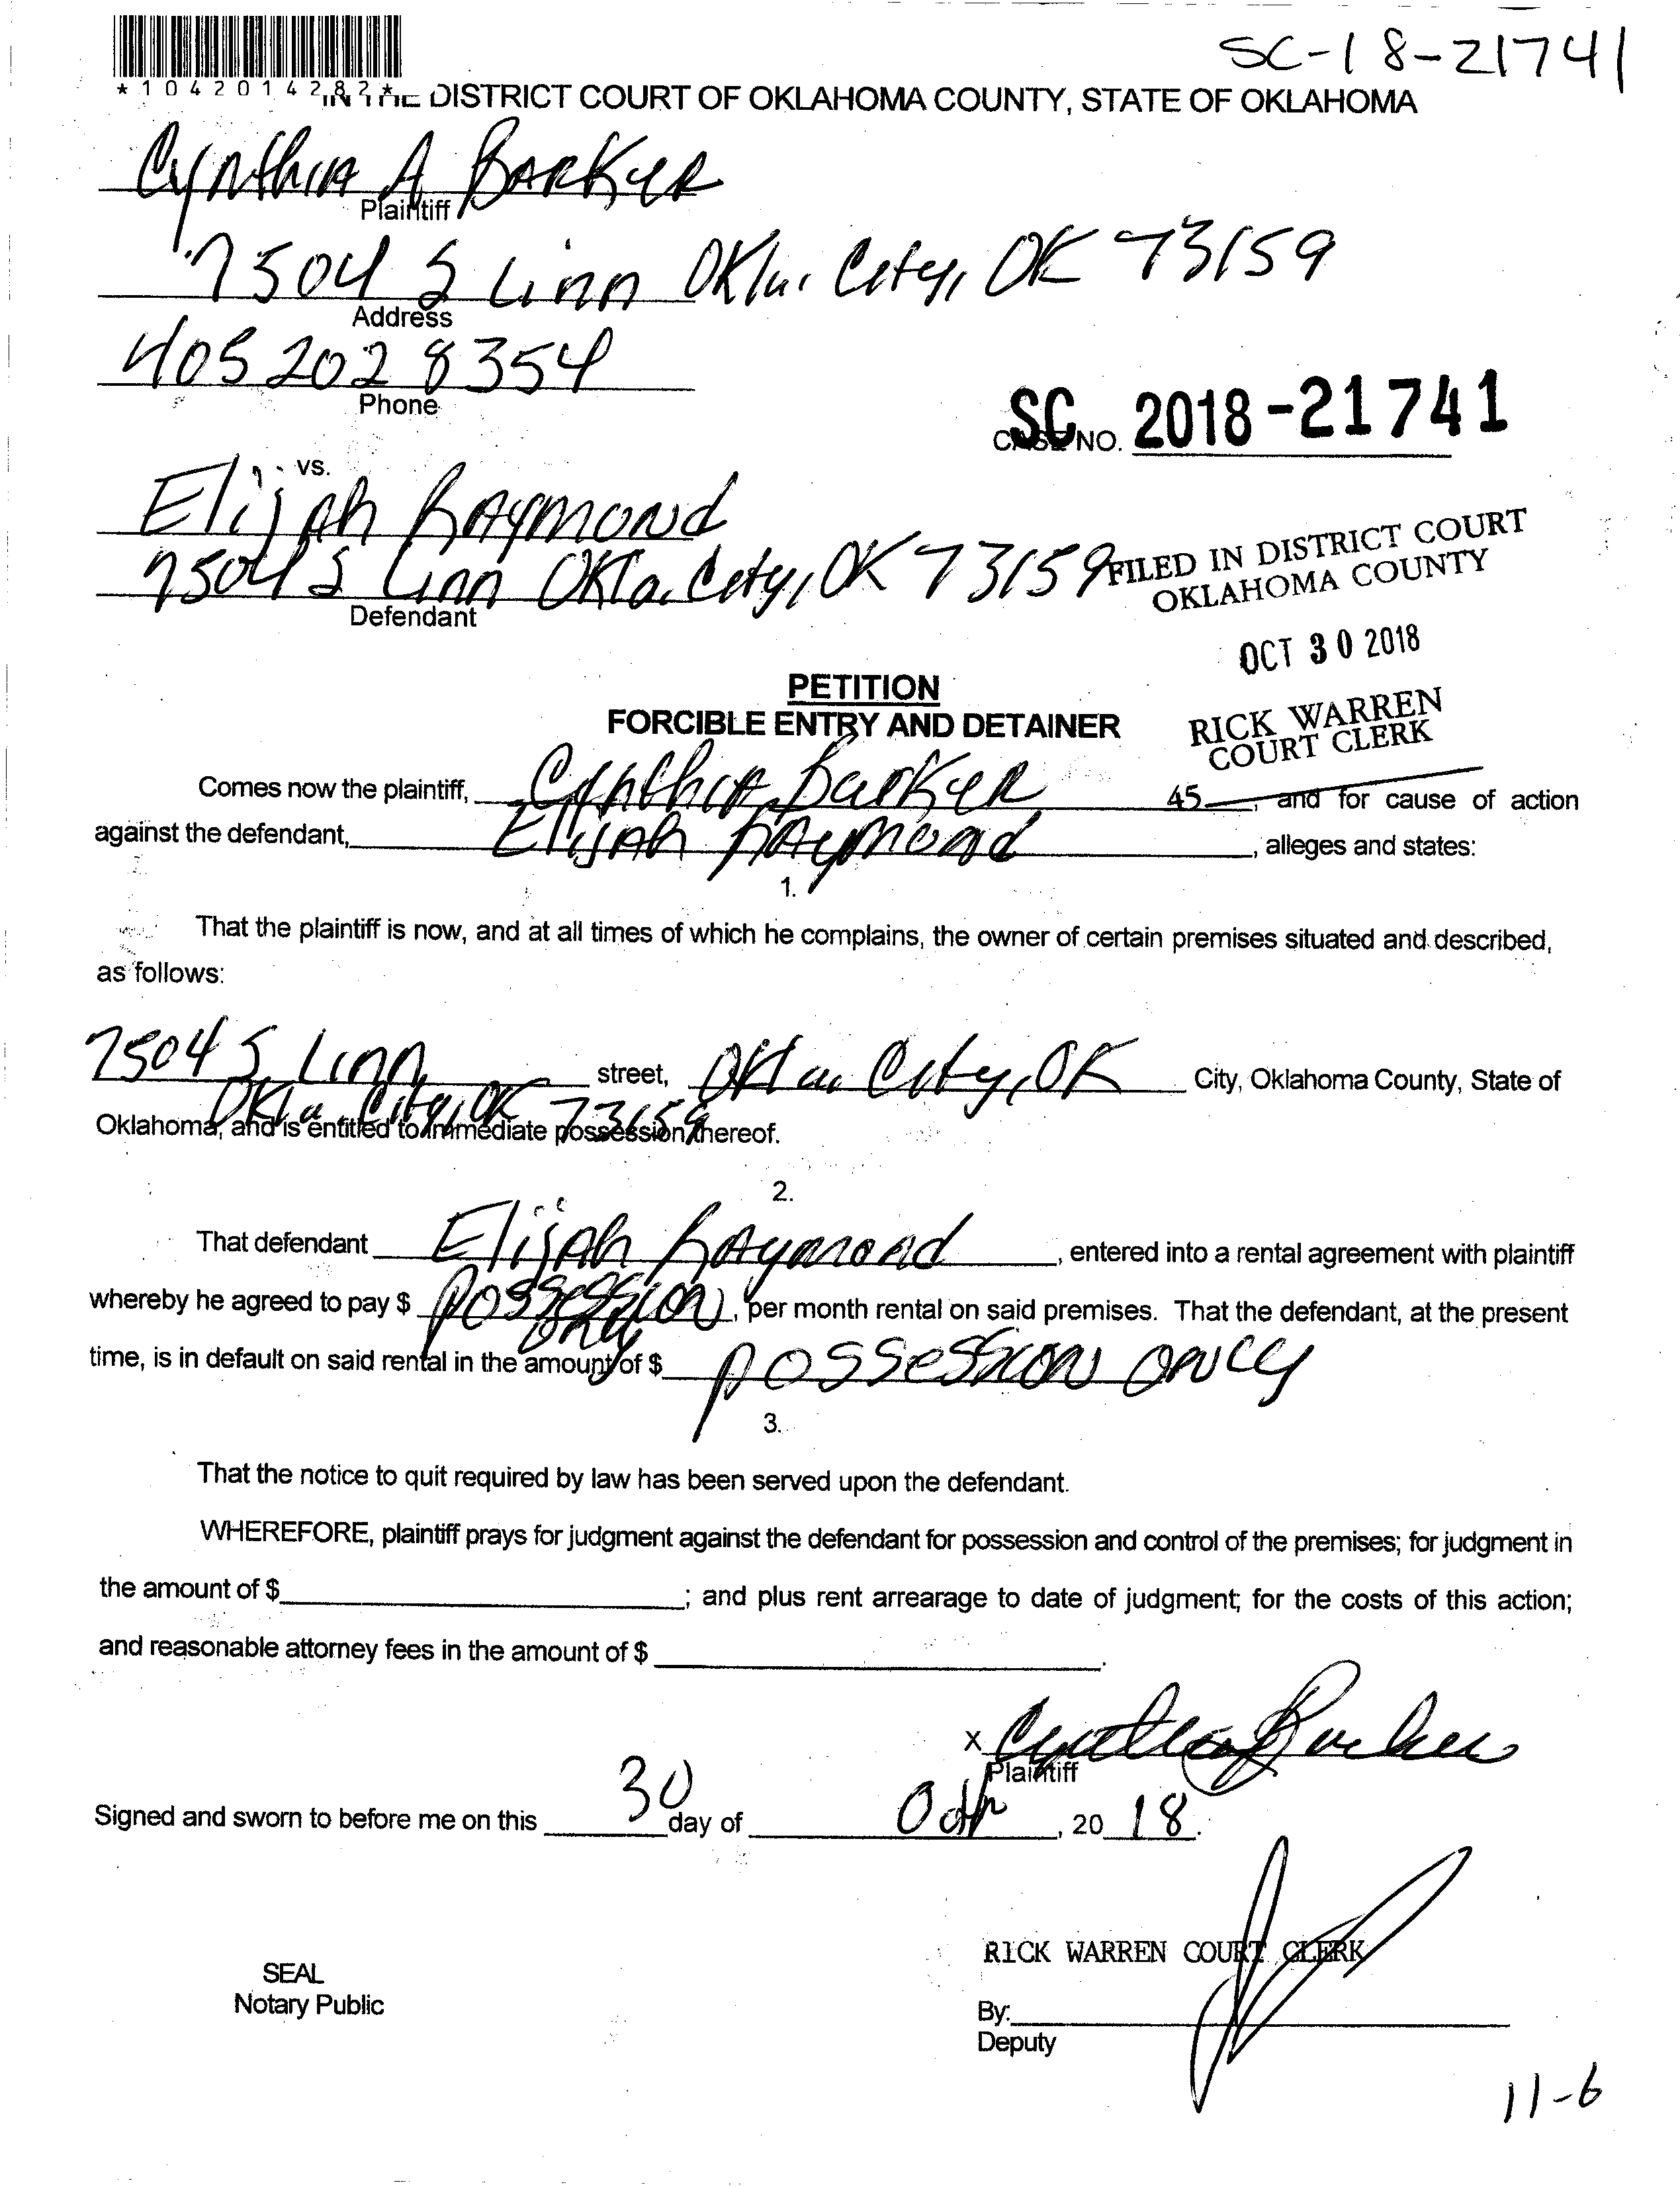 SC-18-21741
*1042014282*
IN THE DISTRICT COURT OF OKLAHOMA COUNTY, STATE OF OKLAHOMA
Cynthia A Barker
Plaintiff
7504 S Linn Okla. City, OK 73159
Address
405 202 8354
Phone
SC 2018-21741
CASE NO.
vs.
Elijah Raymond
7504 S Linn Okla. City, OK 73159
Defendant
FILED IN DISTRICT COURT
OKLAHOMA COUNTY
OCT 30 2018
RICK WARREN
COURT CLERK
45
PETITION
FORCIBLE ENTRY AND DETAINER
Comes now the plaintiff, Cynthia Barker, and for cause of action
against the defendant, Elijah Raymond, alleges and states:
1.
That the plaintiff is now, and at all times of which he complains, the owner of certain premises situated and described,
as follows:
7504 S. Linn street, Okla City, OK City, Oklahoma County, State of
Okla City, OK 73159
Oklahoma, and is entitled to immediate possession thereof.
2.
That defendant Elijah Raymond, entered into a rental agreement with plaintiff
whereby he agreed to pay $ possession only, per month rental on said premises. That the defendant, at the present
time, is in default on said rental in the amount of $ possession only
3.
That the notice to quit required by law has been served upon the defendant.
WHEREFORE, plaintiff prays for judgment against the defendant for possession and control of the premises; for judgment in
the amount of $ ; and plus rent arrearage to date of judgment; for the costs of this action;
and reasonable attorney fees in the amount of $ .
x Cynthia Barker
Plaintiff
Signed and sworn to before me on this 30 day of Oct, 20 18.
RICK WARREN COURT CLERK
SEAL
Notary Public
By:
Deputy
11-6